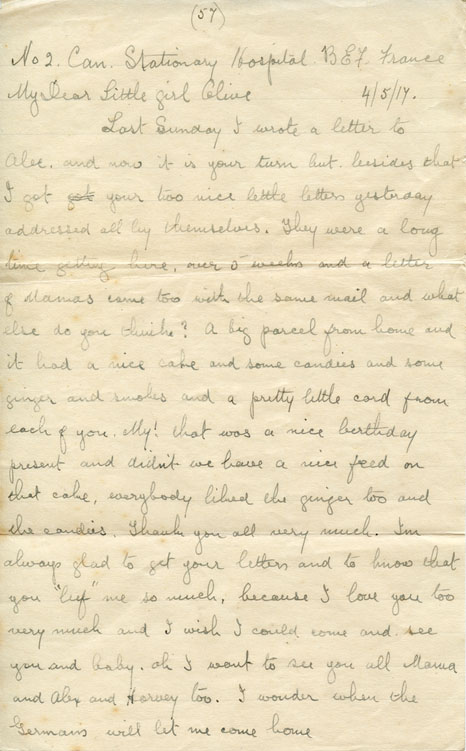 (57)
No 2. Can. Stationary Hospital. B.E.F. France
My Dear Little girl Olive 4/5/17.
Last Sunday I wrote a letter to
Alec. and now it is your turn but. besides that
I got got your too nice little letters yesterday
addressed all by themselves. They were a long
time getting here, over 5 weeks and a letter
of Mamas come too with the same mail and what
else do you think? A big parcel from home and
it had a nice cake and some candies and some
ginger and smokes and a pretty little card from
each of you. My! that was a nice birthday
present and didn't we have a nice feed on
that cake, everybody liked the ginger too and
the candies. Thank you all very much. I'm
always glad to get your letters and to know that
you "luf" me so much, because I love you too
very much and I wish I could come and see
you and baby. oh I want to see you all Mama
and Alex and Harvey too. I wonder when the
Germans will let me come home